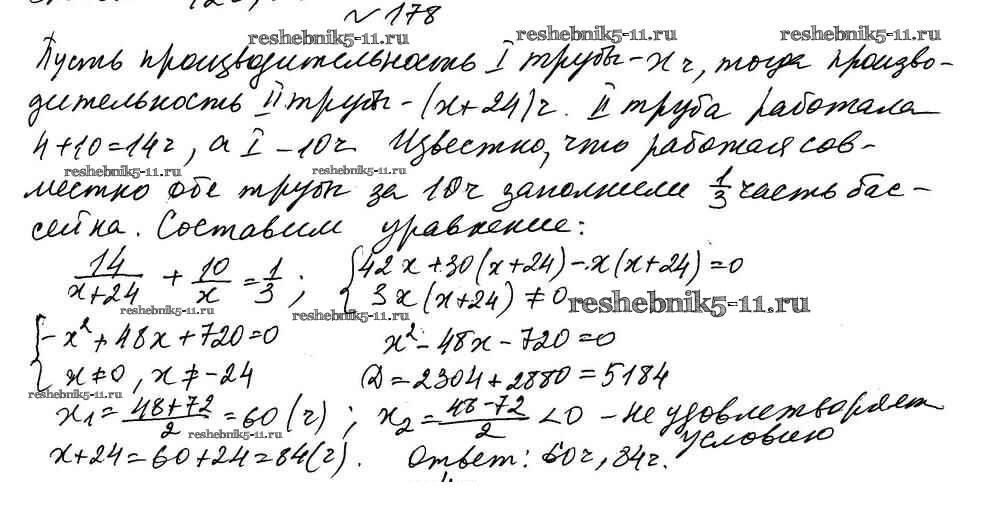 №178
reshebnik5-11.ru reshebnik5-11.ru
Пусть производительность I трубы - x ч, тогда произво-
дительность II трубы - (x+24)ч. II труба работала
4+10=14ч, а I - 10ч. Известно, что работая сов-
reshebnik5-11.ru reshebnik5-11.ru
местно обе трубы за 10ч заполнили 1/3 часть бас-
сейна. Составим уравнение:
14/(x+24) + 10/x = 1/3 ; { 42x+30(x+24)-x(x+24)=0
3x(x+24)≠0 reshebnik5-11.ru
reshebnik5-11.ru reshebnik5-11.ru
{ -x²+48x+720=0 x²-48x-720=0
x≠0, x≠-24 D=2304+2880=5184
reshebnik5-11.ru
x₁=(48+72)/2=60(ч); x₂=(48-72)/2<0 - не удовлетворяет
условию
reshebnik5-11.ru
x+24=60+24=84(ч). Ответ: 60ч, 84ч.